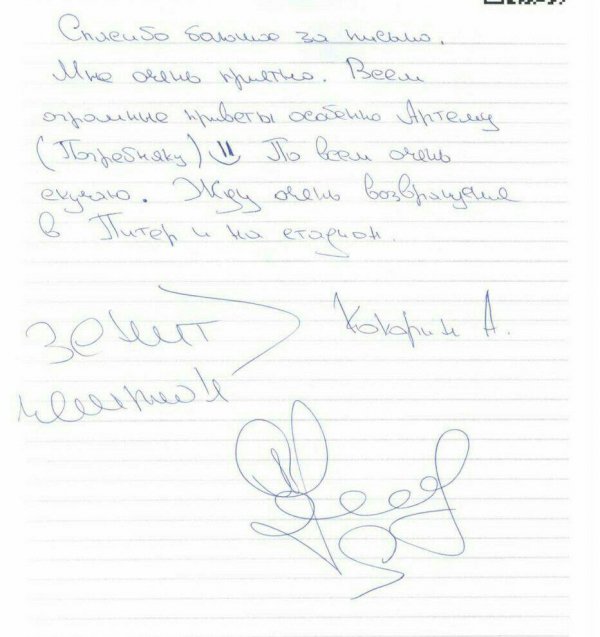 Спасибо большое за письмо.
Мне очень приятно. Всем
огромные приветы особенно Артему
(Погребняку) По всем очень
скучаю. Жду очень возвращения
в Питер и на стадион.
Зенит Кокорин А.
чемпион!